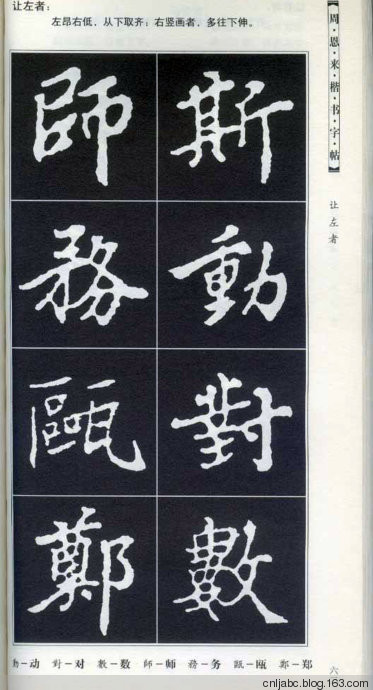 让左者：
左昂右低，从下取齐；右竖画者，多往下伸。
【周·恩·来·楷·书·字·帖】
让左者
師 斯
務 動
甌 對
鄭 數
動－动 對－对 數－数 師－师 務－务 甌－瓯 鄭－郑
六
cnljabc.blog.163.com